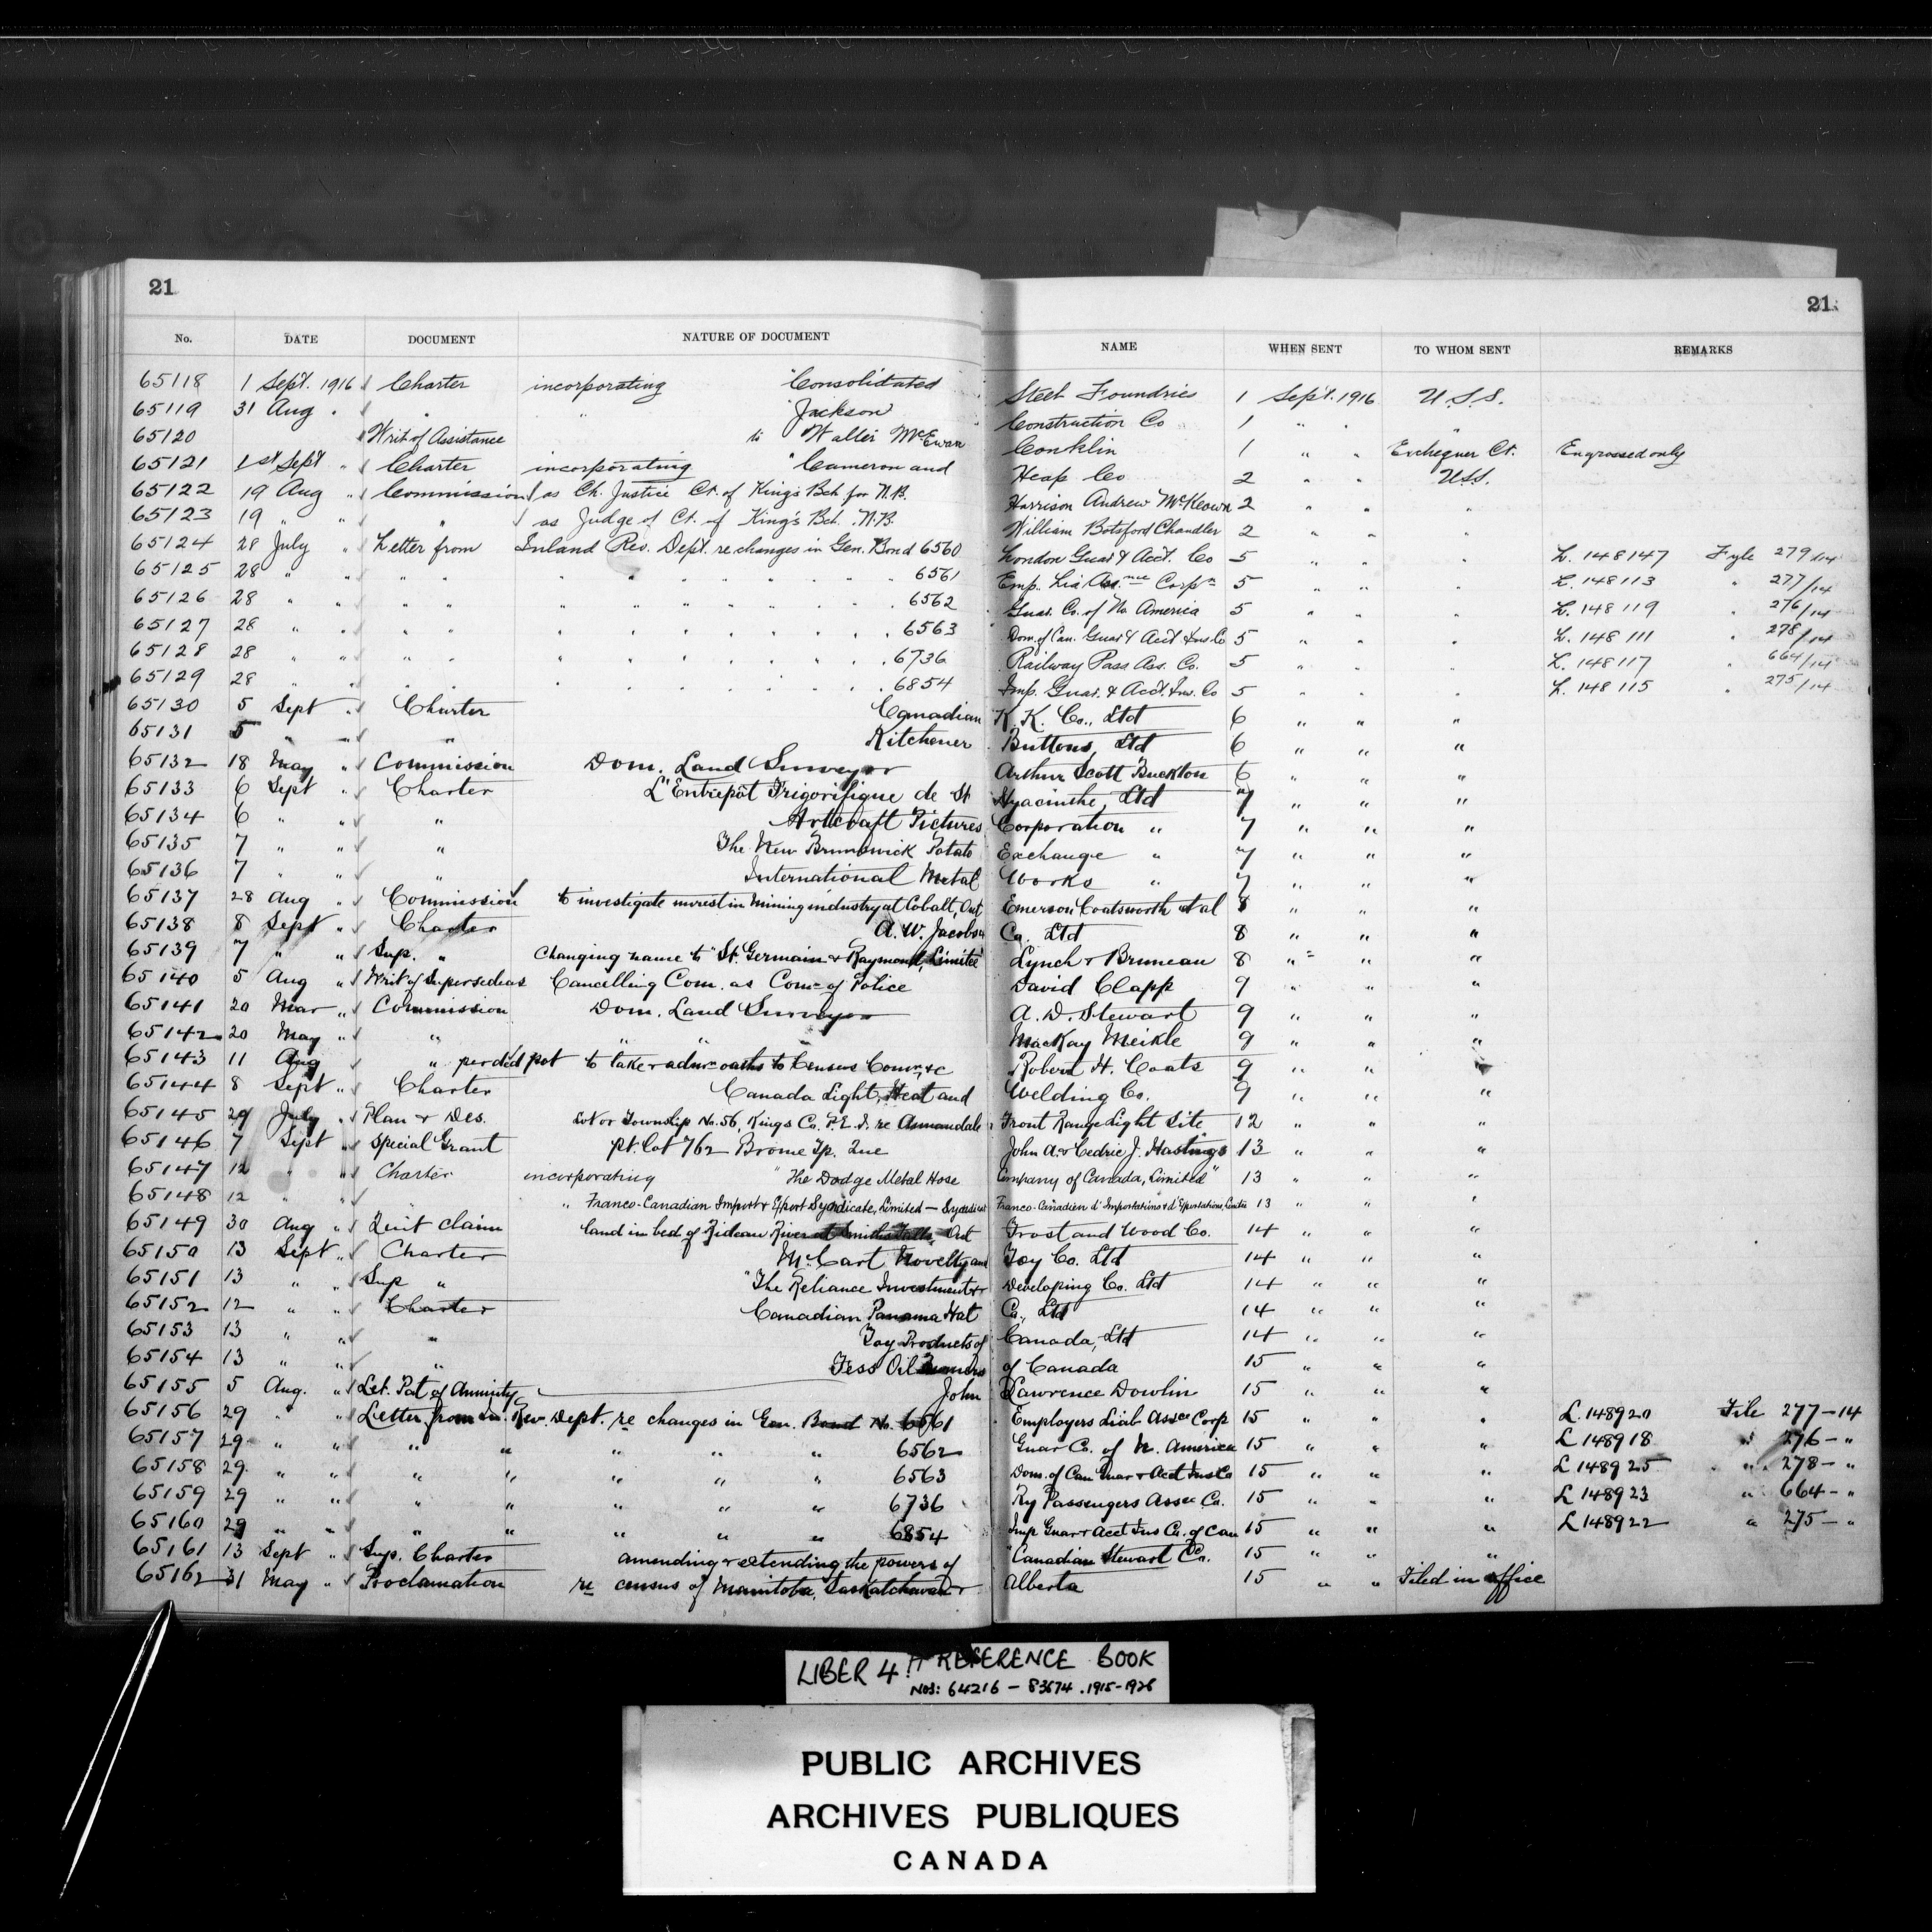 21
21
No. DATE DOCUMENT NATURE OF DOCUMENT NAME WHEN SENT TO WHOM SENT REMARKS
65118 1 Sept. 1916 Charter incorporating "Consolidated Steel Foundries 1 Sept. 1916 U.S.S.
65119 31 Aug " " " "Jackson Construction Co 1 " " "
65120 Writ of Assistance to Walter McEwan Conklin 1 " " Exchequer Ct. Engrossed only
65121 1st Sept " Charter incorporating "Cameron and Heap Co 2 " " USS.
65122 19 Aug " Commission as Ch. Justice Ct. of King's Bch. for N.B. Harrison Andrew McKeown 2 " " "
65123 19 " " " as Judge of Ct. of King's Bch. N.B. William Botsford Chandler 2 " " "
65124 28 July " Letter from Inland Rev. Dept. re changes in Gen. Bond 6560 London Guar & Acct. Co 5 " " " L. 148147 Fyle 279/14
65125 28 " " " " " " " " " " 6561 Emp. Lia Assnce Corpn 5 " " " L. 148113 " 277/14
65126 28 " " " " " " " " " " 6562 Guar. Co. of No. America 5 " " " L. 148119 " 276/14
65127 28 " " " " " " " " " " 6563 Dom. of Can. Guar & Acct Ins. Co 5 " " " L. 148111 " 278/14
65128 28 " " " " " " " " " " 6736 Railway Pass Ass. Co. 5 " " " L. 148117 " 664/14
65129 28 " " " " " " " " " " 6854 Imp. Guar. & Acct. Ins. Co 5 " " " L. 148115 " 275/14
65130 5 Sept " Charter Canadian K. K. Co., Ltd 6 " " "
65131 5 " " " Kitchener Buttons, Ltd 6 " " "
65132 18 May " Commission Dom. Land Surveyor Arthur Scott Buckton 6 " " "
65133 6 Sept " Charter L'Entrepôt Frigorifique de St Hyacinthe, Ltd 7 " " "
65134 6 " " " Artcraft Pictures Corporation " 7 " " "
65135 7 " " " The New Brunswick Potato Exchange " 7 " " "
65136 7 " " " International Metal Works " 7 " " "
65137 28 Aug " Commission to investigate unrest in Mining industry at Cobalt, Ont Emerson Coatsworth et al 8 " " "
65138 8 Sept " Charter A. W. Jacobs Co. Ltd 8 " " "
65139 7 " " Sup. " Changing name to "St. Germain & Raymond, Limitée Lynch & Bruneau 8 " " "
65140 5 Aug " Writ of Supersedeas Cancelling Com. as Comr of Police David Clapp 9 " " "
65141 20 Mar " Commission Dom. Land Surveyor A. D. Stewart 9 " " "
65142 20 May " " " " MacKay Meikle 9 " " "
65143 11 Aug " per ded pot to take & admr oaths to Census Comrs, &c Robert H. Coats 9 " " "
65144 8 Sept " Charter Canada Light, Heat and Welding Co. 9 " " "
65145 29 July " Plan & Des. Lot or Township No. 56, Kings Co. P.E.I. re Annandale Front Range Light Site 12 " " "
65146 7 Sept " Special Grant pt. Lot 762 Brome Tp. Que John A. & Cedric J. Hastings 13 " " "
65147 12 " " Charter incorporating "The Dodge Metal Hose Company of Canada, Limited" 13 " " "
65148 12 " " " " Franco-Canadian Import & Export Syndicate, Limited — Syndicat Franco-Canadien d'Importations & d'Exportations, Limitée 13 " " "
65149 30 Aug " Quit claim land in bed of Rideau River at Smiths Falls, Ont Frost and Wood Co. 14 " " "
65150 13 Sept " Charter McCart Novelty and Toy Co. Ltd 14 " " "
65151 13 " " Sup " "The Reliance Investment & Developing Co. Ltd 14 " " "
65152 12 " " Charter Canadian Panama Hat Co., Ltd 14 " " "
65153 13 " " " Toy Products of Canada, Ltd 14 " " "
65154 13 " " " Fess Oil Burners of Canada 15 " " "
65155 5 Aug. " Let. Pat of Annuity John Lawrence Dowlin 15 " " "
65156 29 " " Letter from In. Rev. Dept. re changes in Gen. Bond No. 6561 Employers Liab Assce Corp 15 " " " L. 148920 File 277-14
65157 29 " " " " " " " 6562 Guar Co. of N. America 15 " " " L 148918 " 276- "
65158 29 " " " " " " " 6563 Dom. of Can Guar & Acct Ins Co 15 " " " L 148925 " 278- "
65159 29 " " " " " " " 6736 Ry Passengers Assce Co. 15 " " " L 148923 " 664- "
65160 29 " " " " " " " 6854 Imp Guar & Acct Ins Co. of Can 15 " " " L 148922 " 275- "
65161 13 Sept " Sup. Charter amending & extending the powers of "Canadian Stewart Co. 15 " " "
65162 31 May " Proclamation re census of Manitoba, Saskatchewan & Alberta 15 " " Filed in office
LIBER 4 REFERENCE BOOK
NOS: 64216 - 83674 . 1915-1926
PUBLIC ARCHIVES
ARCHIVES PUBLIQUES
CANADA